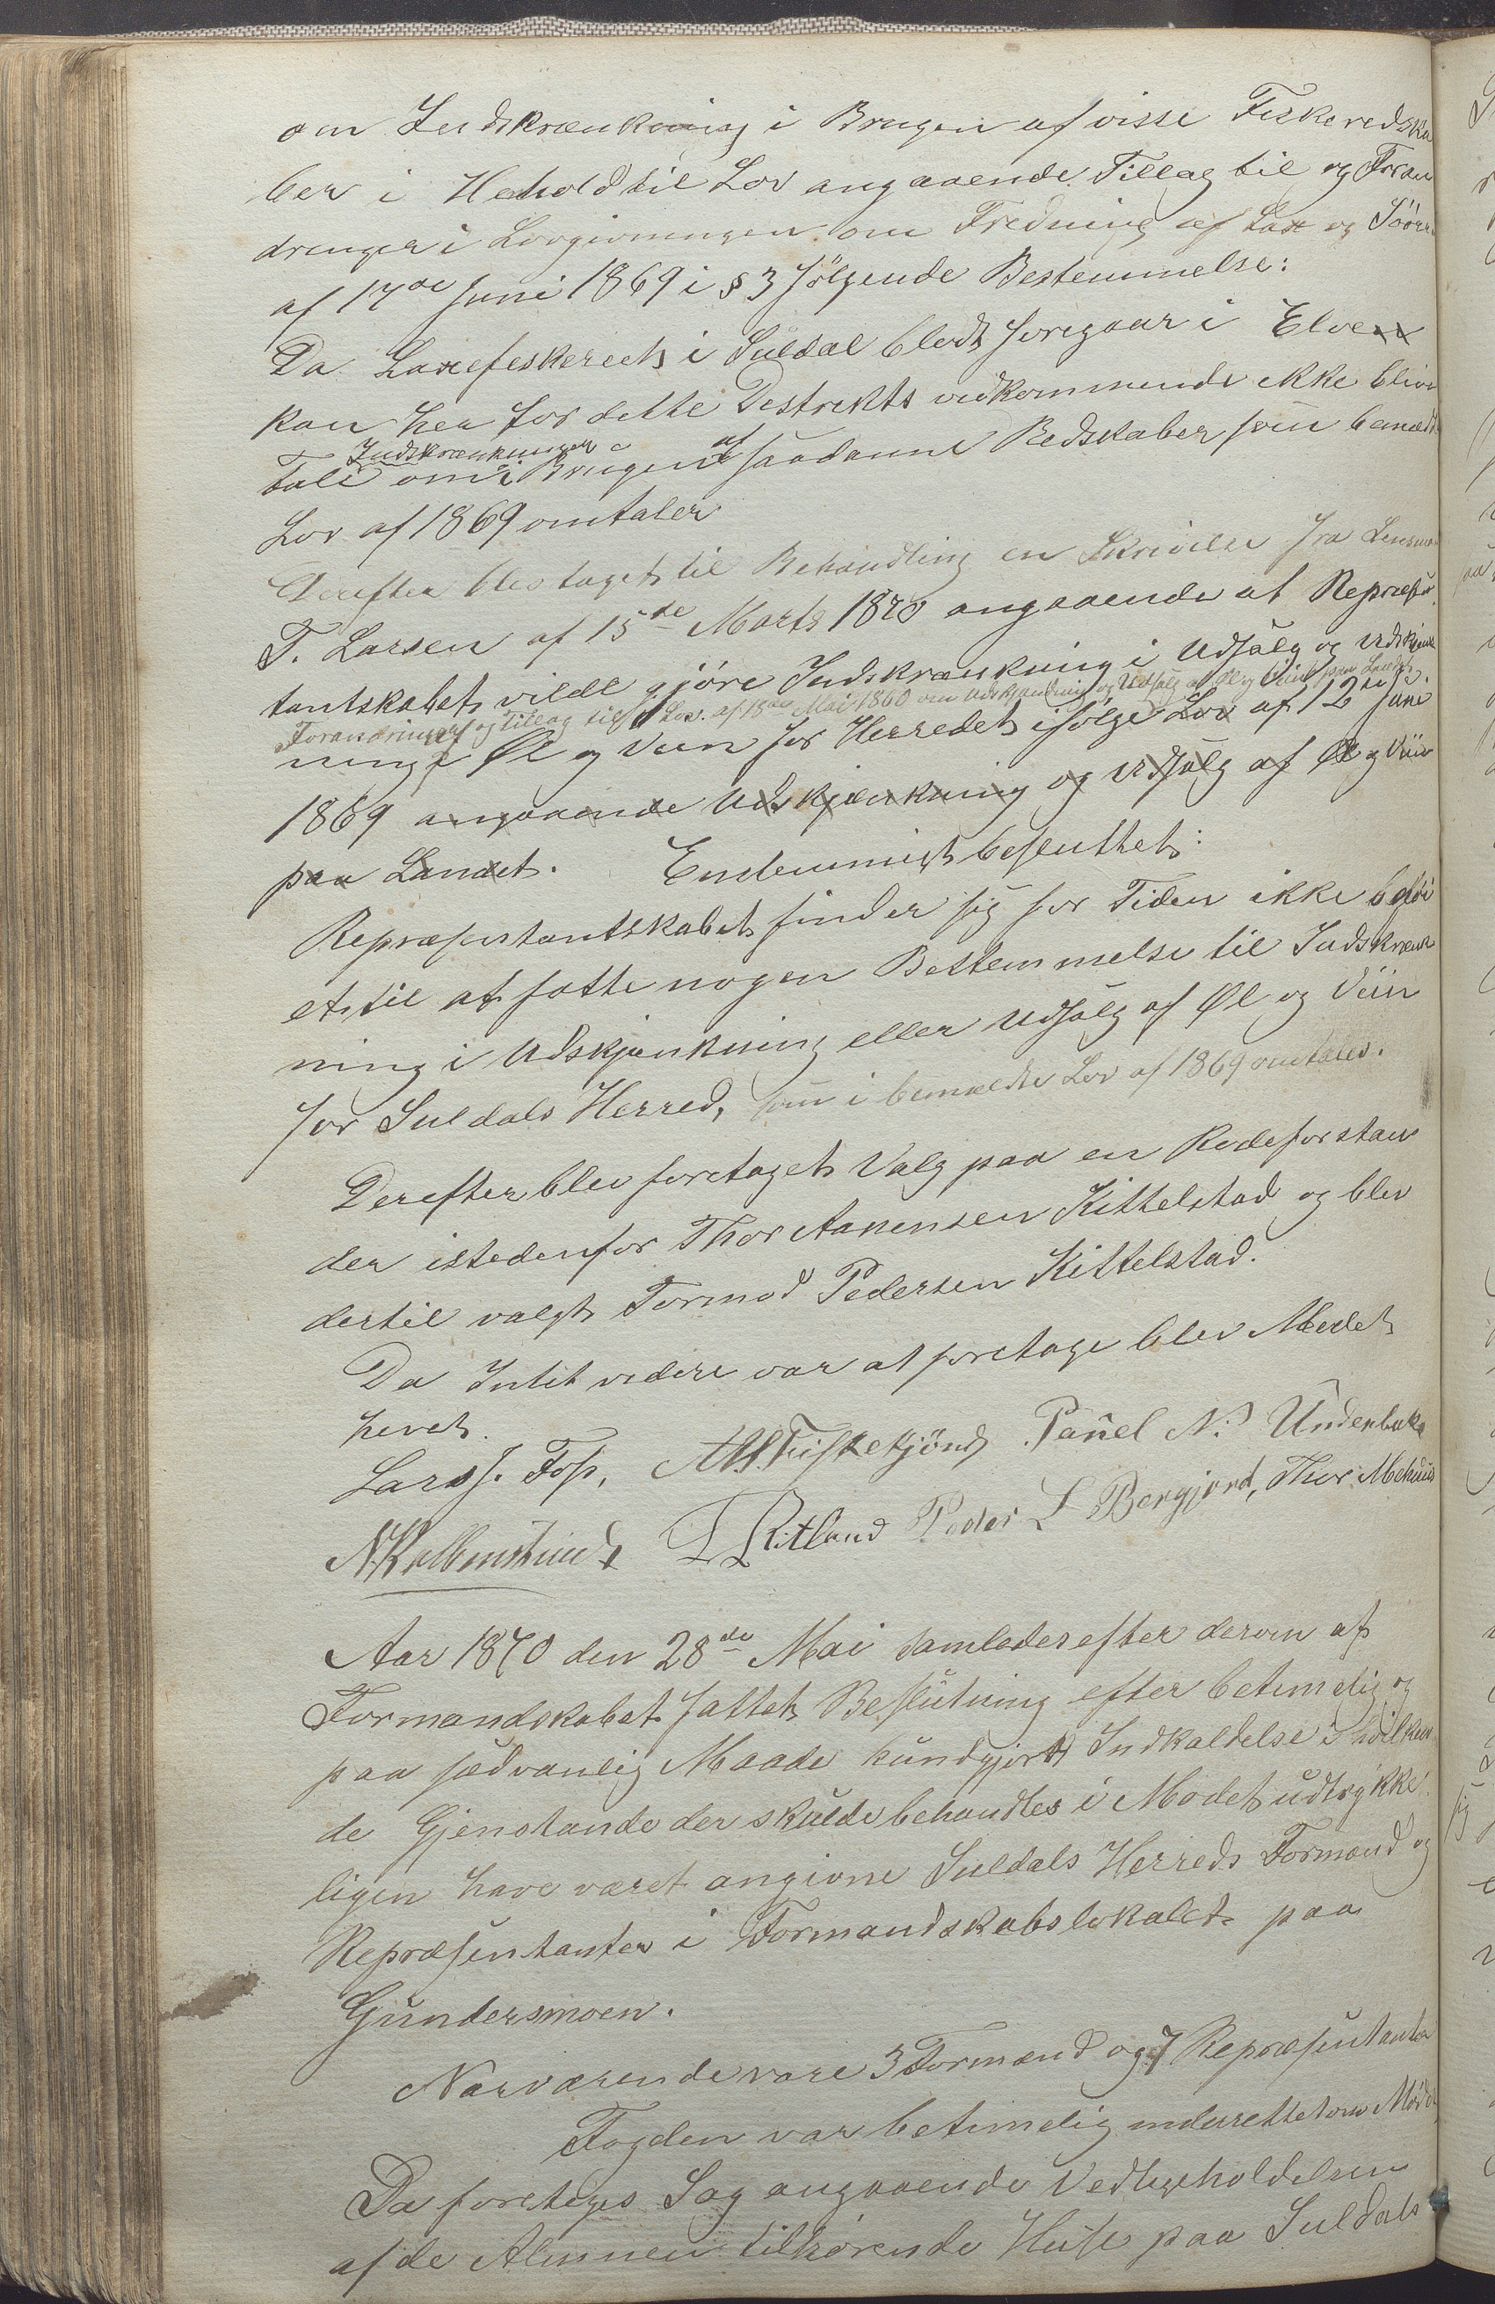 om Indskrænkning i Brugen af visse Fiskeredska
ber i Hehold til Lov angaaende Tillæg til og Foran
dringer i Lovgivningen om Fredning af Lax og Söörr
af 17de Juni 1869 i § 3 fölgende Bestemmelse:
Da Laxefiskeriet i Suldal blodt foregaar i Elven
kan her for dette Distrikts vedkommende ikke blive
Tale om Indskrænkninger i Brugen af saadanne Redskaber som benævnte
Lov af 1869 omtaler
Derefter blev taget til Behandling en Skrivelse fra Lensmand
T. Larsen af 15de Marts 1870 angaaende at Repræsen
tantskabet vilde gjöre Indskrænkning i Udsalg og Udskjænk
Forandringer og Tillæg til Lov af 18de Mai 1860 om Udskjænkning og Udsalg af Øl og Viin paa Landet
ning Øl og Viin for Herredet ifölge Lov af 12te Juni
1869 angaaende Udskjænkning og Udsalg af Øl og Viin
paa Landet. Endemmigt besluttet:
Repræsentantskabet finder sig for Tiden ikke beföi
et til at fatte nogen Bestemmelse til Indskrænk
ning i Udskjænkning eller Udsalg af Øl og Viin
for Suldals Herred, som i bemældte Lov af 1869 omtales.
Derefter blev foretaget Valg paa en Rodeforstan
der istedenfor Thor Aanensen Kittelstad og blev
dertil valgt Tormod Pedersen Kittelstad.
Da Intet videre var at foretage blev Mødet
hevet.
Lars J. Foss, A H. Fisketjönd Paüel N. Underbakke
N Kolbenstvedt L Ritland Peder L Bergjord, Thor Mehuus
Aar 1870 den 28de Mai samledes efter derom af
Formandskabet fattet Beslutning efter betimelig og
paa sædvanlig Maade kundgjort Indkaldelse i hvilken
de Gjenstande der skulde behandles i Modet udtrykke
ligen have været angivne Suldals Herreds Formænd og
Repræsentanter i Formandskabslokalet paa
Gundersmoen.
Nærværende vare 3 Formænd og 7 Repræsentanter
Fogden var betimelig underrettet om Mødet
Da foretoges Sag angaaende Vedligeholdelsen
af de Almuen tilhørende Huse paa Suldals